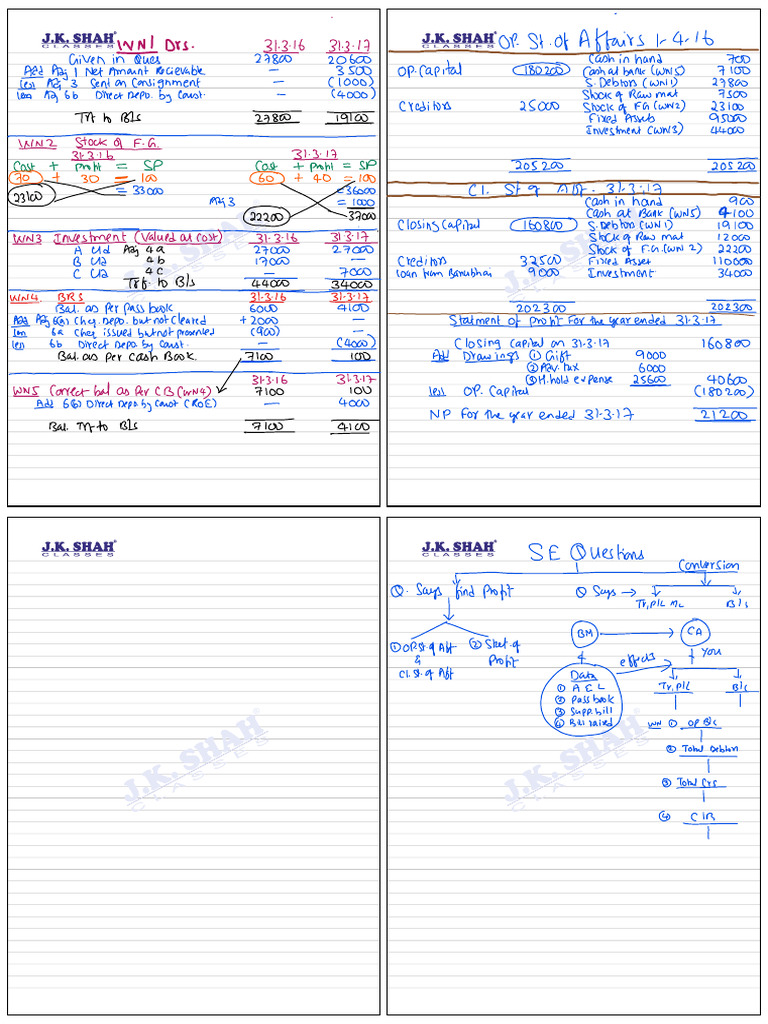 J.K. SHAH®
CLASSES
WN1 Drs. 31.3.16 31.3.17
Given in Ques 27800 20600
Add Adj 1 Net Amount Recievable — 3500
less Adj 3 Sent on Consignment — (1000)
less Adj 6b Direct Depo. by Cust. — (4000)
Trf to B/s 27800 19100
WN2 Stock of F.G.
31.3.16 31.3.17
Cost + Profit = SP Cost + Profit = SP
70 + 30 = 100 60 + 40 = 100
23100 = 33000 = 36000
Adj 3 = 1000
22200 37000
WN3 Investment (Valued at cost) 31.3.16 31.3.17
A Ltd Adj 4a 27000 27000
B Ltd 4b 17000 —
C Ltd 4c — 7000
Trf. to B/s 44000 34000
WN4. BRS 31.3.16 31.3.17
Bal. as Per Pass book 6000 4100
Add Adj 6(a) Chq. Depo. but not Cleared + 2000 —
less 6a Chqs issued but not presented (900) —
less 6b Direct Depo. by Cust. — (4000)
Bal. as Per Cash Book. 7100 100
WN5 Correct bal as Per CB (WN4) 31.3.16 31.3.17
7100 100
Add 6(b) Direct Depo by Cust (ROE) — 4000
Bal. Trf to B/s 7100 4100
J.K. SHAH®
CLASSES
Op. St. of Affairs 1.4.16
Cash in hand 700
OP. Capital 180200 Cash at bank (WN5) 7100
S. Debtors (WN1) 27800
Stock of Raw mat 7500
Creditors 25000 Stock of F.G (WN2) 23100
Fixed Assets 95000
Investment (WN3) 44000
205200 205200
Cl. St of Aff. 31.3.17
Cash in hand 900
Cash at Bank (WN5) 4100
Closing Capital 160800 S. Debtors (WN1) 19100
Stock of Raw mat 12000
Stock of F.G. (WN 2) 22200
Creditors 32500 Fixed Asset 110000
loan from Banubhai 9000 Investment 34000
202300 202300
Statment of Profit For the year ended 31.3.17
Closing Capital on 31.3.17 160800
Add Drawings ① Gift 9000
② Adv. tax 6000
③ H.hold expense 25600 40600
less OP. Capital (180200)
NP For the year ended 31.3.17 21200
J.K. SHAH®
CLASSES
J.K. SHAH®
CLASSES
J.K. SHAH®
CLASSES
SE Questions
Conversion
Q. Says find Profit Q Says → Tr, P/L B/s
① OP. St. of Aff & Cl. St. of Aff
② Stmt. of Profit
BM CA
effects You
Data
① A E L
② Pass book
③ Supp. bill
④ Bill raised
Tr, P/L B/s
WN ① OP B/s
② Total Debtors
③ Total Crs
④ C/B
J.K. SHAH®
CLASSES